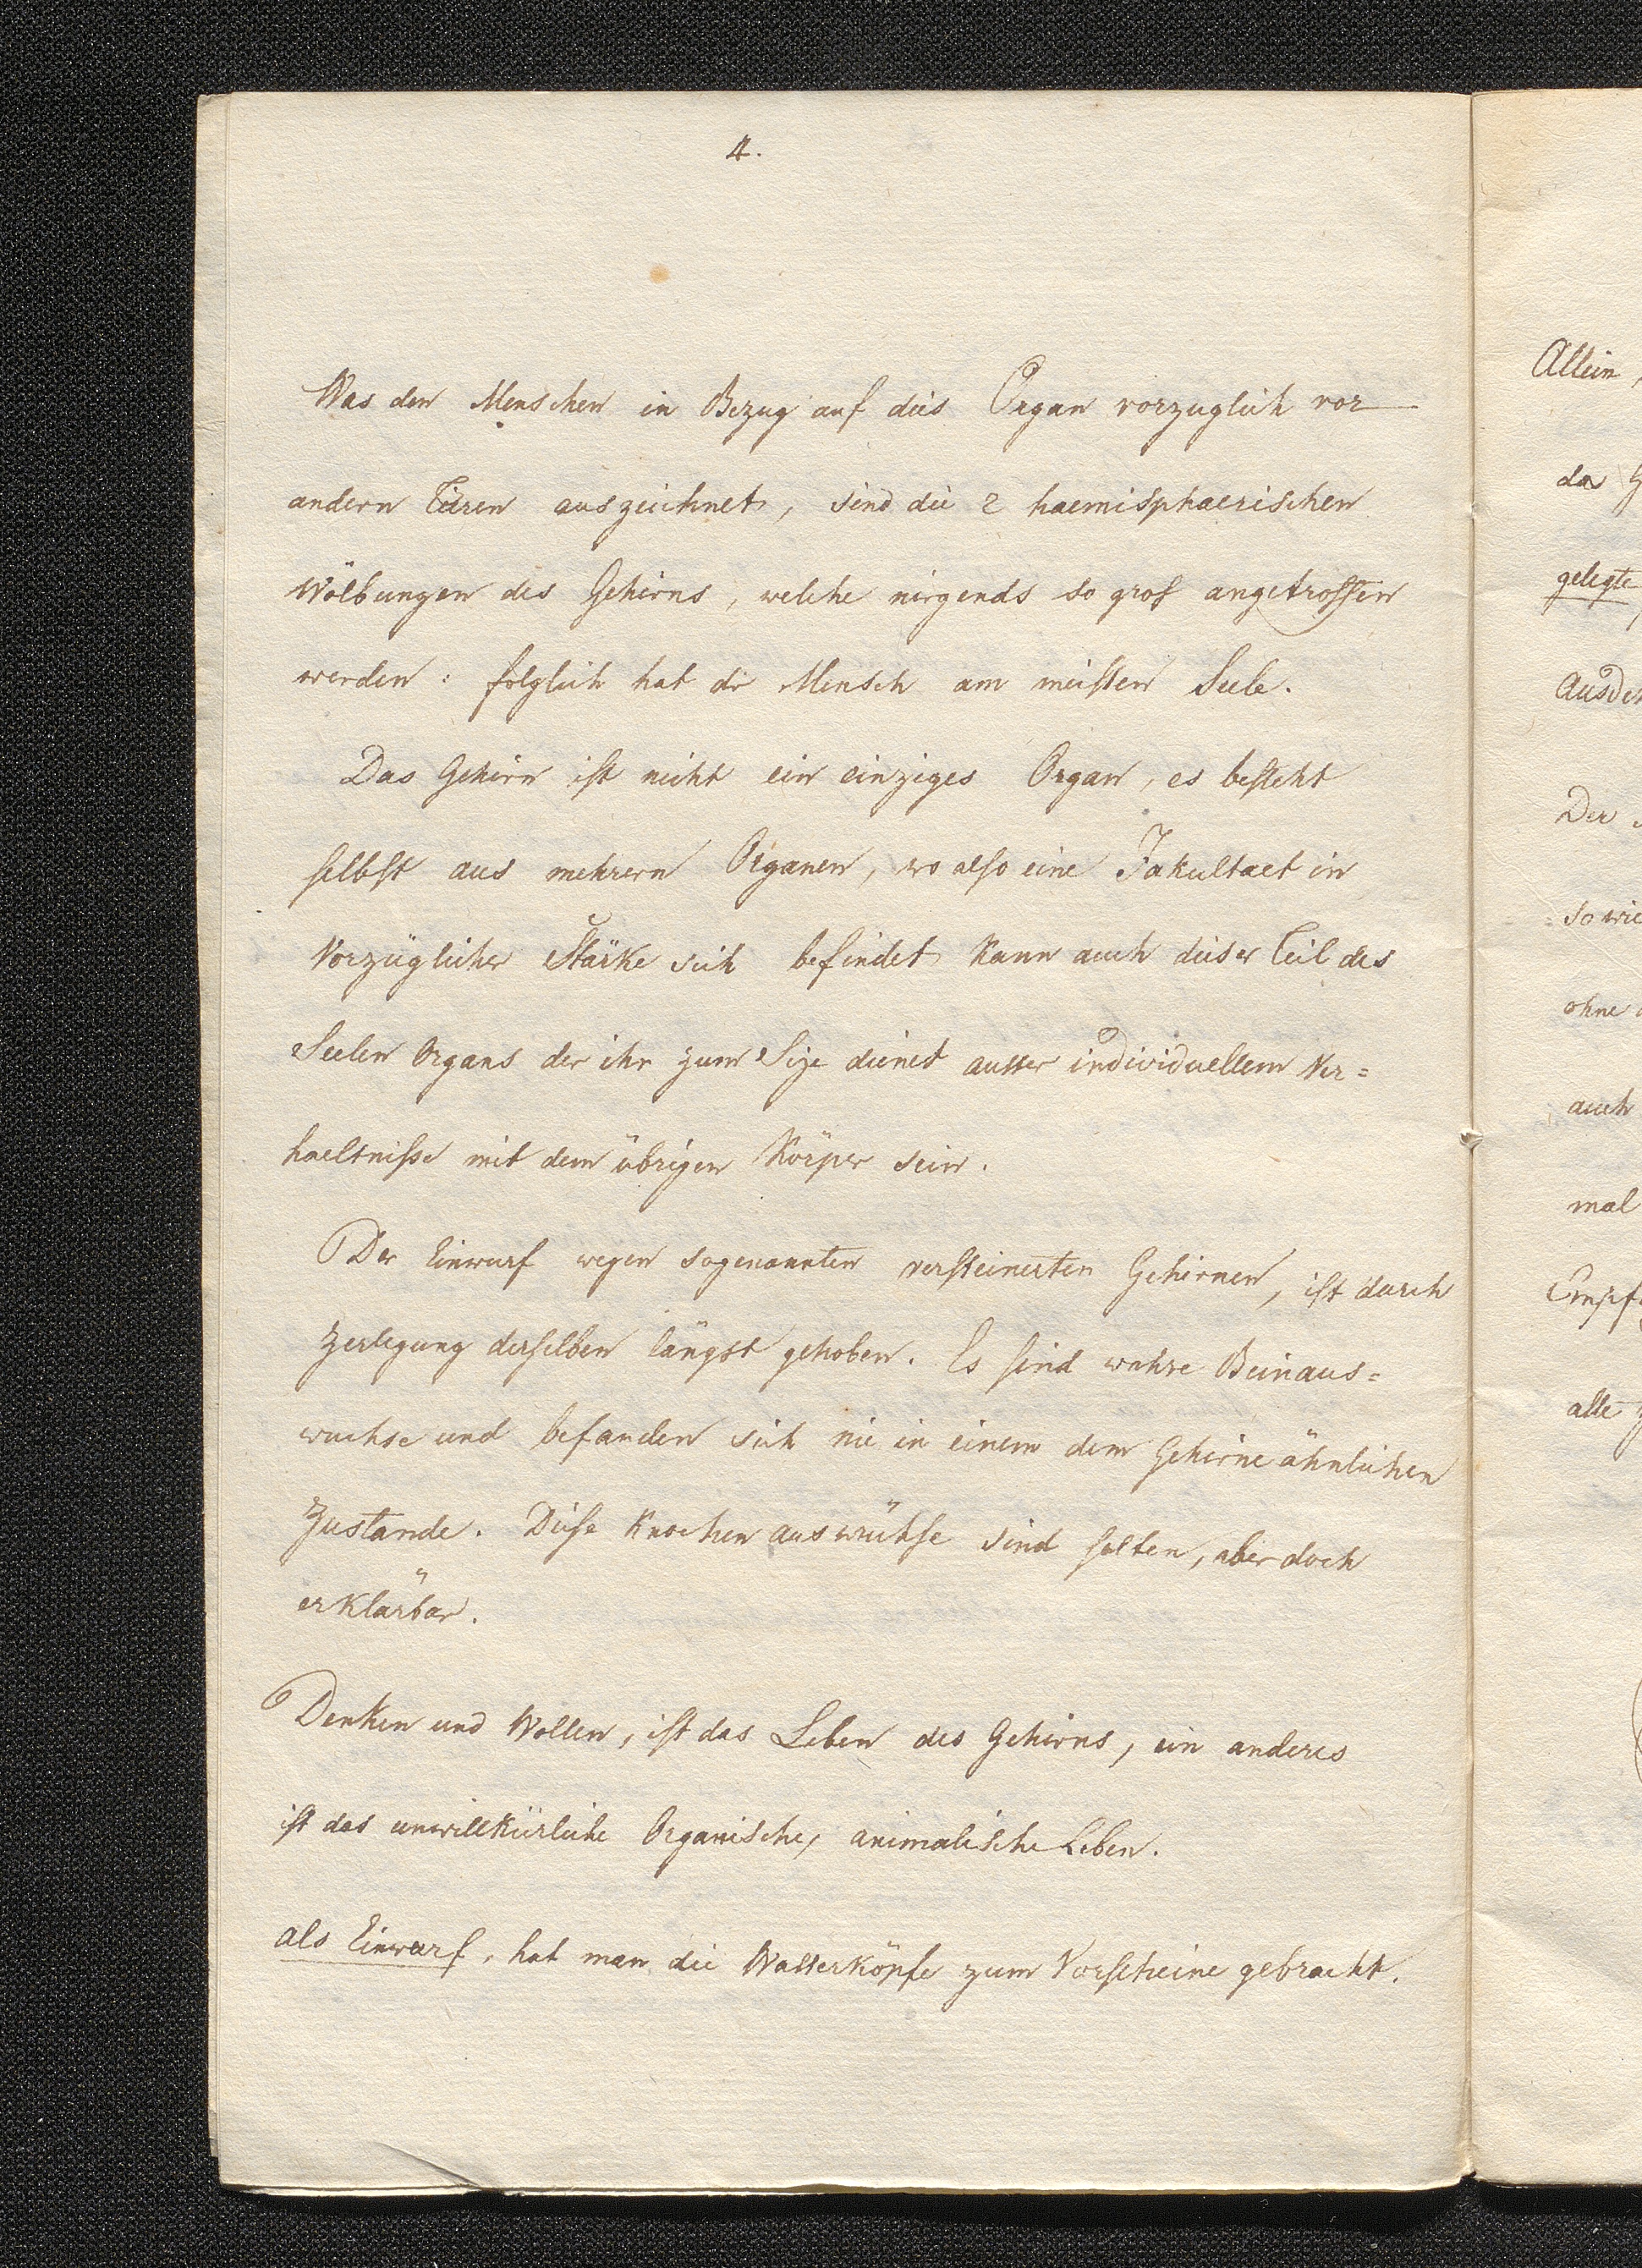 4.
Was den Menschen in Bezug auf dies Organ vorzuglich vor
andern Tieren auszeichnet, sind die 2 haemisphaerischen
Wölbungen des Gehirns, welche nirgends so gros angetroffen
werden: folglich hat dr Mensch am meisten Seele.
Das Gehirn ist nicht ein einziges Organ, es besteht
selbst aus mehrern Organen, wo also eine Fakultaet in
Vorzüglicher Stärke sich befindet kann auch dieser Teil des
Seelen Organs der ihr zum Size dienet ausser individuellem Ver=
haeltnisse mit dem übrigen Körper sein.
Der Einwurf wegen sogenannten versteinerten Gehirnen, ist durch
Zerlegung derselben längst gehoben. Es sind wahre Beinaus=
wuchse und befanden sich nie in einem dem Gehirne ähnlichen
Zustande. Diese Knochen auswüchse sind selten, aber doch
erklärbar.
Denken und Wollen, ist das Leben des Gehirns, ein anderes
ist das unwillkürliche Organische, animalische Leben.
als Einwurf, hat man die Wasserköpfe zum Vorscheine gebracht.
Allein,
da
gelegte
Der
so wie
ohne
auch
mal
alle